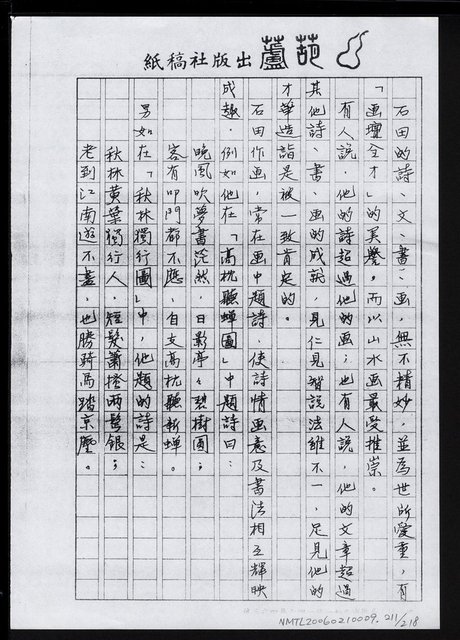 葫蘆出版社稿紙
石田的詩、文、書、画，無不精妙，並為世所愛重，有
「画壇全才」的美譽。而以山水画最受推崇。
有人說，他的詩超過他的画；也有人說，他的文章超過
其他詩、書、画的成就，見仁見智說法雖不一，足見他的
才華造詣是被一致肯定的。
石田作画，常在画中題詩，使詩情画意及書法相互輝映
成趣。例如他在「高枕聽蟬圖」中題詩曰：
晚風吹夢書茫然，日影亭亭碧樹圓；
客有叩門都不應，自支高枕聽新蟬。
另如在「秋林獨行圖」中，他題的詩是：
秋林黃葉獨行人，短髮蕭搔兩鬢銀；
老到江南遊不盡，也勝騎馬踏京塵。
NMTL20060210009. 211/218